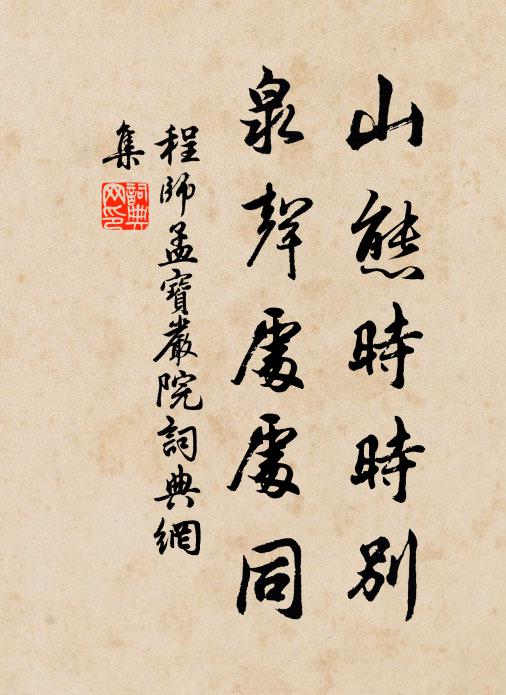 山態時時別
泉聲處處同
程師孟寶嚴院詞典網
集
詞典網印